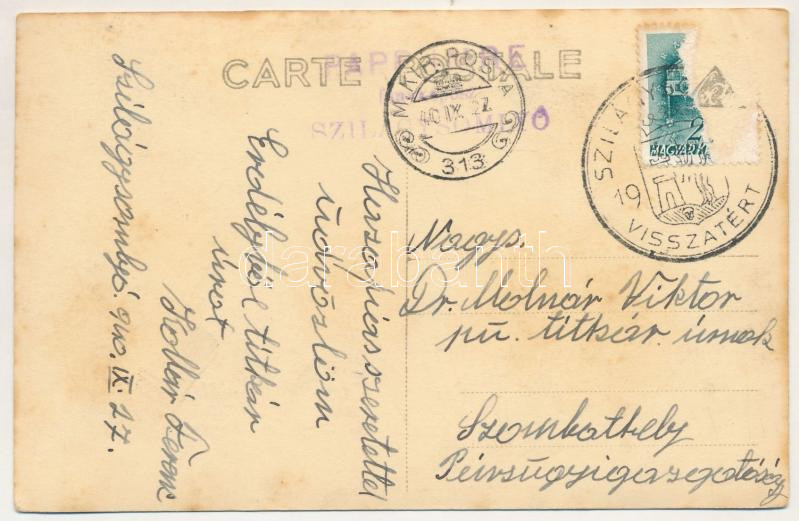 CARTE POSTALE
SZILÁGYSOMLYÓ
M. KIR. POSTA
40 IX 27
313
SZILÁGYSOMLYÓ
VISSZATÉRT
19
2
MAGYAR
Szilágysomlyó. 940. IX. 27.
Hazafias szeretettel
üdvözlöm
Erdélyből titkár
urat
Hollár Ferenc
Nagys.
Dr. Molnár Viktor
pü. titkár úrnak
Szombathely
Pénzügyigazgatóság
darabanth